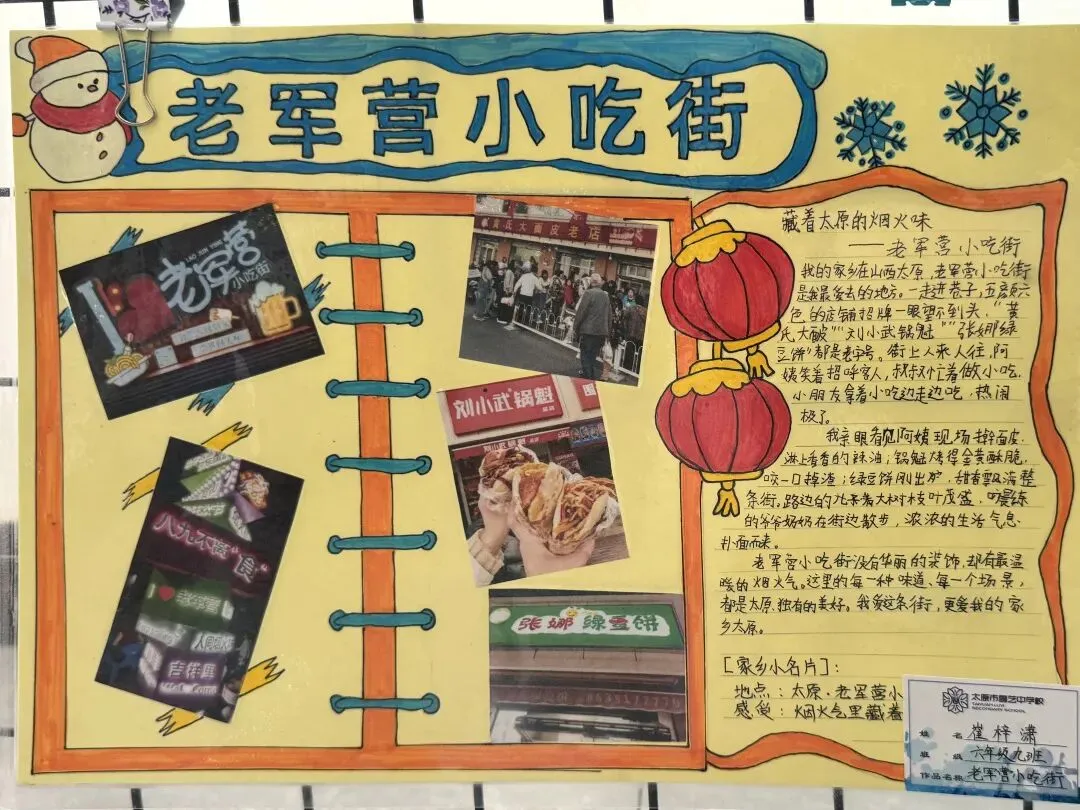 老军营小吃街
老军营
LAO JUN YING
小吃街
八九不离"食"
老军营
人间烟火
黄氏大面皮老店
刘小武锅魁
刘小武锅魁
张娜绿豆饼
藏着太原的烟火味
——老军营小吃街
我的家乡在山西太原,老军营小吃街
是我最爱去的地方。一走进巷子,五颜六
色的店铺招牌一眼望不到头,"黄
氏大面皮""刘小武锅魁""张娜绿
豆饼"都是老字号。街上人来人往,阿
姨笑着招呼客人,叔叔忙着做小吃,
小朋友拿着小吃边走边吃,热闹
极了。
我亲眼看见阿姨现场擀面皮,
淋上香香的辣油;锅魁烤得金黄酥脆,
咬一口掉渣;绿豆饼刚出炉,甜香飘满整
条街。路边的大树枝叶茂盛,晨练
的爷爷奶奶在街边散步,浓浓的生活气息
扑面而来。
老军营小吃街没有华丽的装饰,却有最温
暖的烟火气。这里的每一种味道、每一个场景,
都是太原独有的美好。我爱这条街,更爱我的家
乡太原。
[家乡小名片]:
地点:太原·老军营小
感觉:烟火气里藏着
太原市 中学校
SECONDARY SCHOOL
姓名 崔梓潇
班级 六年级九班
作品名称 老军营小吃街